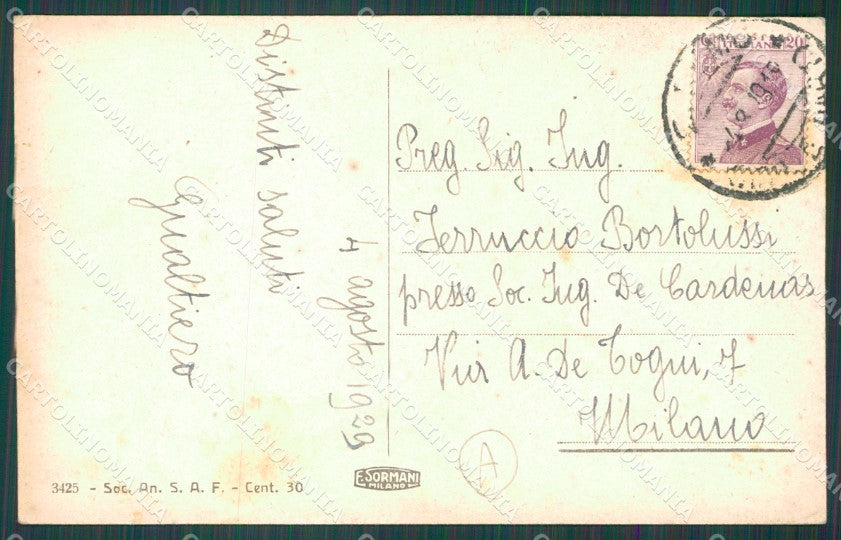 Distinti saluti
Gualtiero
4 agosto 1929
Preg. Sig. Ing.
Ferruccio Bortolussi
presso Soc. Ing. De Cardenas
Via A. De Togni, 7
Milano
A
20
F. SORMANI
MILANO
3425 - Soc. An. S. A. F. - Cent. 30
CARTOLINOMANIA